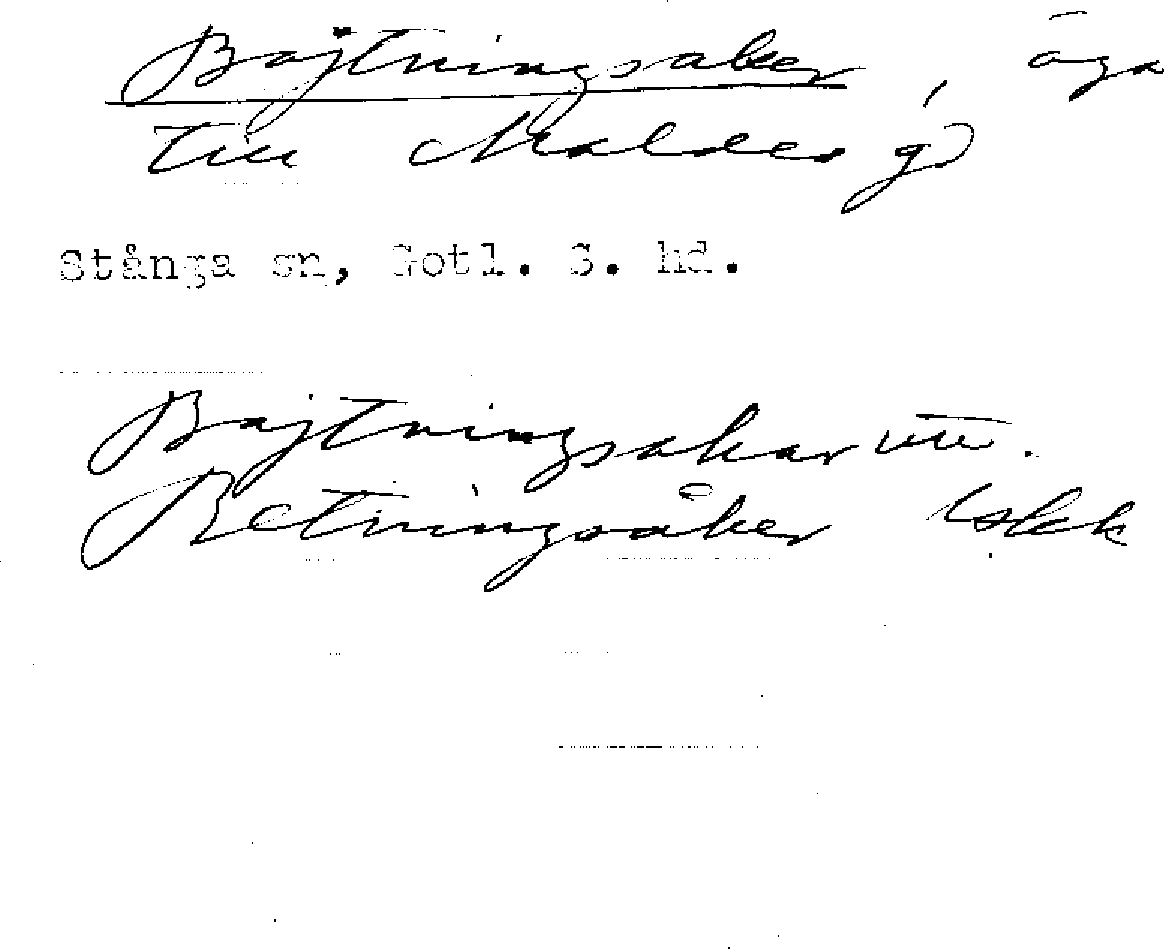 Bajtningsaker, äga
till Maldes gd
Stånga sn, Gotl. S. hd.
Bajtningsakar utt.
Betningsåker Iskk